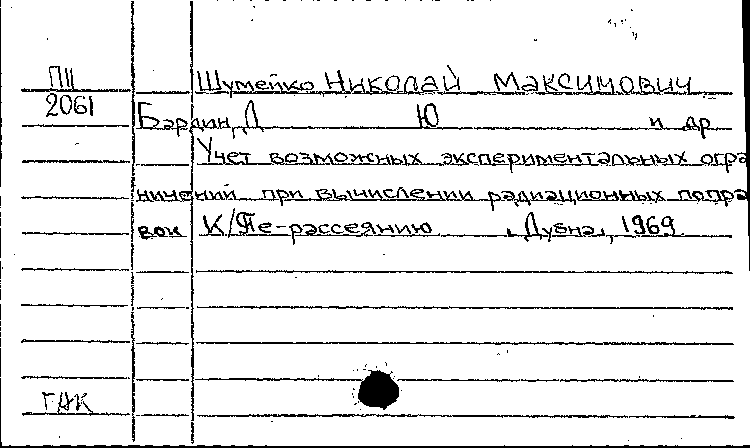 ПII Шумейко Николай Максимович
2061 Бардин, Д Ю и др
Учет возможных экспериментальных огра
ничений при вычислении радиационных попра
вок К/Пе-рассеянию , Дубна, 1969
ГАК